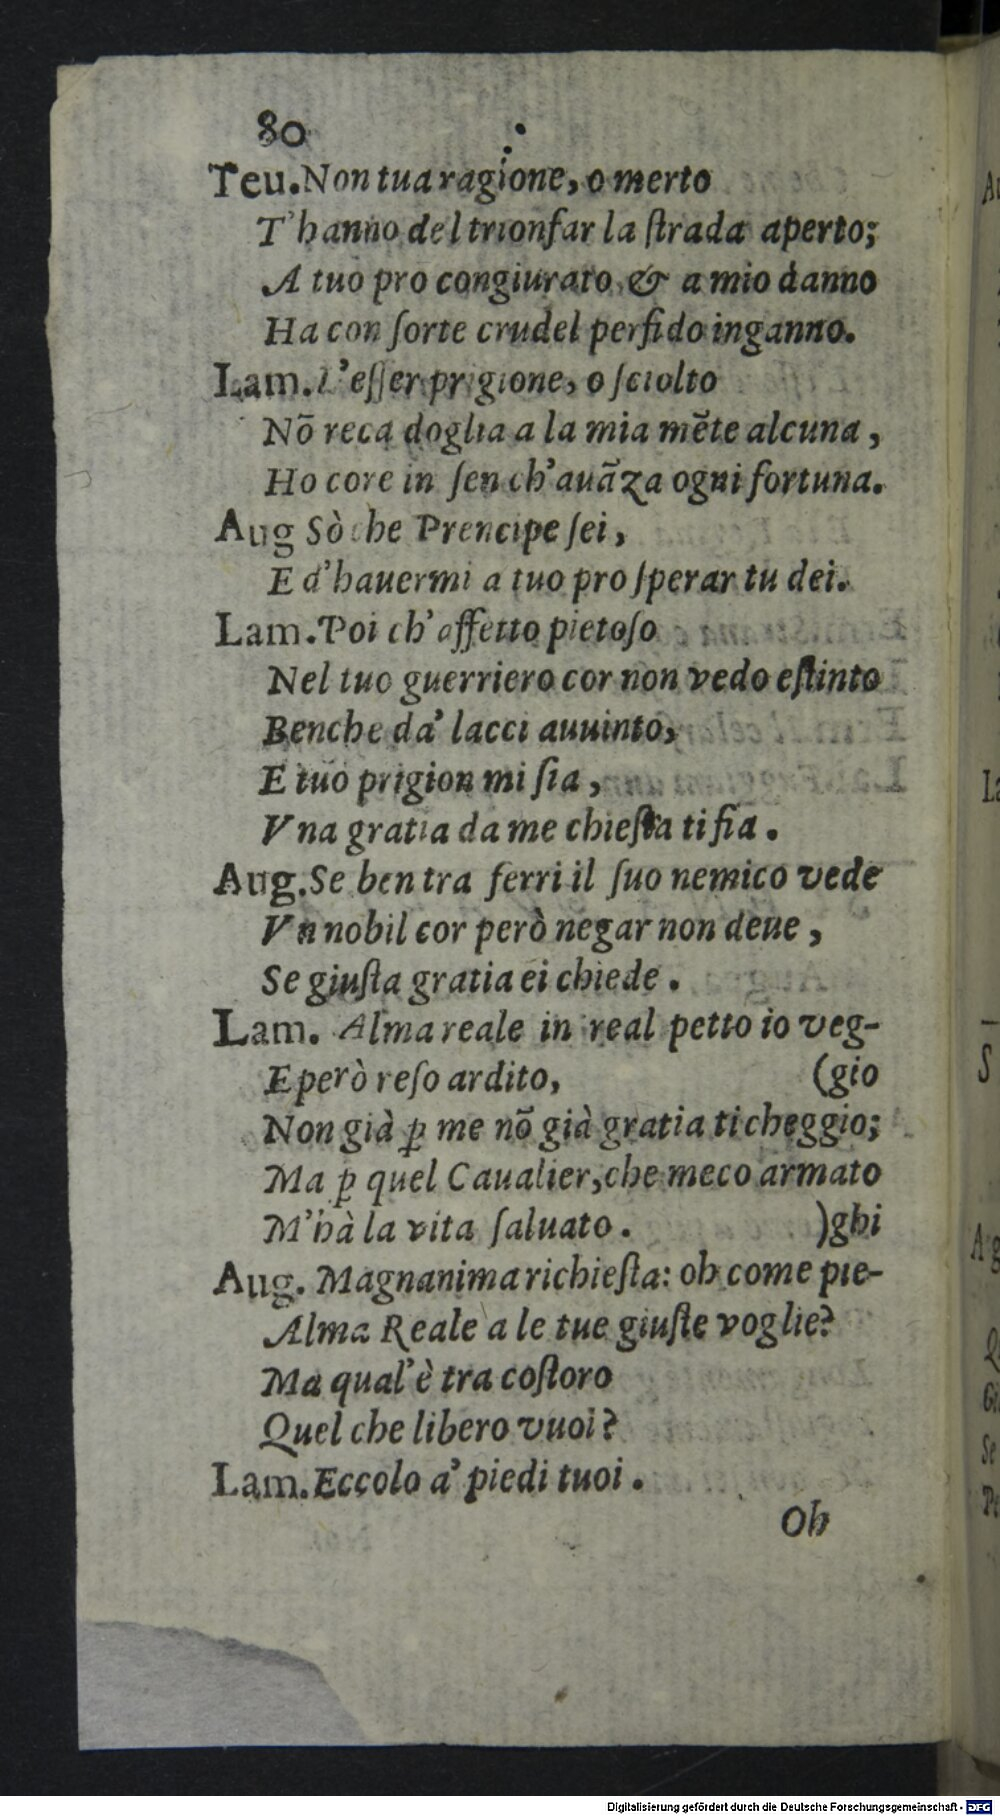 80
Teu. Non tua ragione, o merto
T'hanno del trionfar la ſtrada aperto;
A tuo pro congiurato & a mio danno
Ha con ſorte crudel perfido inganno.
Lam. L'eſſer prigione, o ſciolto
Nõ reca doglia a la mia mẽte alcuna,
Ho core in ſen ch'auãza ogni fortuna.
Aug Sò che Prencipe ſei,
E d'hauermi a tuo pro ſperar tu dei.
Lam. Poi ch'affetto pietoſo
Nel tuo guerriero cor non vedo eſtinto
Benche da' lacci auuinto,
E tuo prigion mi ſia,
Vna gratia da me chieſta ti fia.
Aug. Se ben tra ferri il ſuo nemico vede
Vn nobil cor però negar non deue,
Se giuſta gratia ei chiede.
Lam. Alma reale in real petto io veg-
E però reſo ardito, (gio
Non già ꝑ me nõ già gratia ti cheggio;
Ma ꝑ quel Caualier, che meco armato
M'hà la vita ſaluato. )ghi
Aug. Magnanima richieſta: oh come pie-
Alma Reale a le tue giuſte voglie?
Ma qual'è tra coſtoro
Quel che libero vuoi?
Lam. Eccolo a' piedi tuoi.
Oh
Digitalisierung gefördert durch die Deutsche Forschungsgemeinschaft - DFG